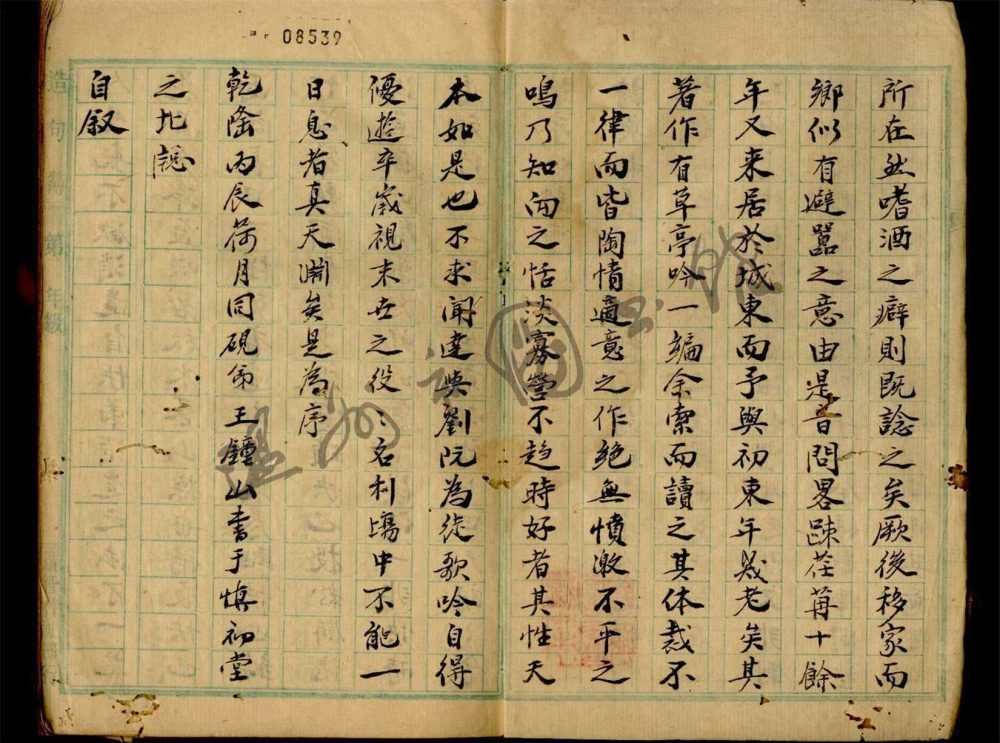 08539
所在然嗜酒之癖則既諗之矣厥後移家而
鄉似有避囂之意由是音問畧踈荏苒十餘
年又来居於城東而予與初東年㡬老矣其
著作有草亭吟一編余索而讀之其体裁不
一律而皆陶情適意之作絶無憤激不平之
鳴乃知向之恬淡寡營不趋時好者其性天
本如是也不求聞達與劉阮為徒歌吟自得
優遊卒歲視末世之役〻名利塲中不能一
日息者真天淵矣是為序
乾隆丙辰荷月同硯弟王鐘山書于慎初堂
之北牕
自叙